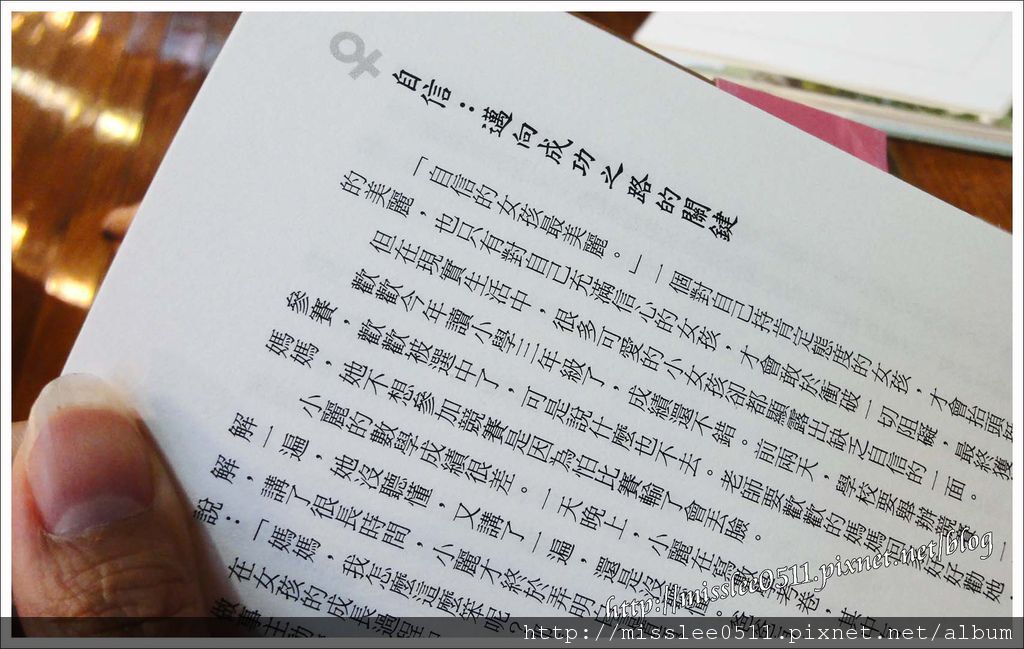 自信：邁向成功之路的關鍵
「自信的女孩最美麗。」一個對自己持肯定態度的女孩，才會抬頭
的美麗，也只有對自己充滿信心的女孩，才會敢於衝破一切阻礙，最終獲
但在現實生活中，很多可愛的小女孩卻都顯露出缺乏自信的一面。
歡歡今年讀小學三年級了，成績還不錯。前兩天，學校要舉辦
參賽，歡歡被選中了，可是說什麼也不去。老師要歡歡的媽媽回 好好勸她
媽媽，她不想參加競賽是因為怕比賽輸了會丟臉。
小麗的數學成績很差。一天晚上，小麗在 考卷，其
解一遍，她沒聽懂，又講了一遍，還是沒
解，講了很長時間，小麗才終於弄明
說：「媽媽，我怎麼這麼笨呢？
在女孩的成長過程
做事主動
http://misslee0511.pixnet.net/blog
http://misslee0511.pixnet.net/album